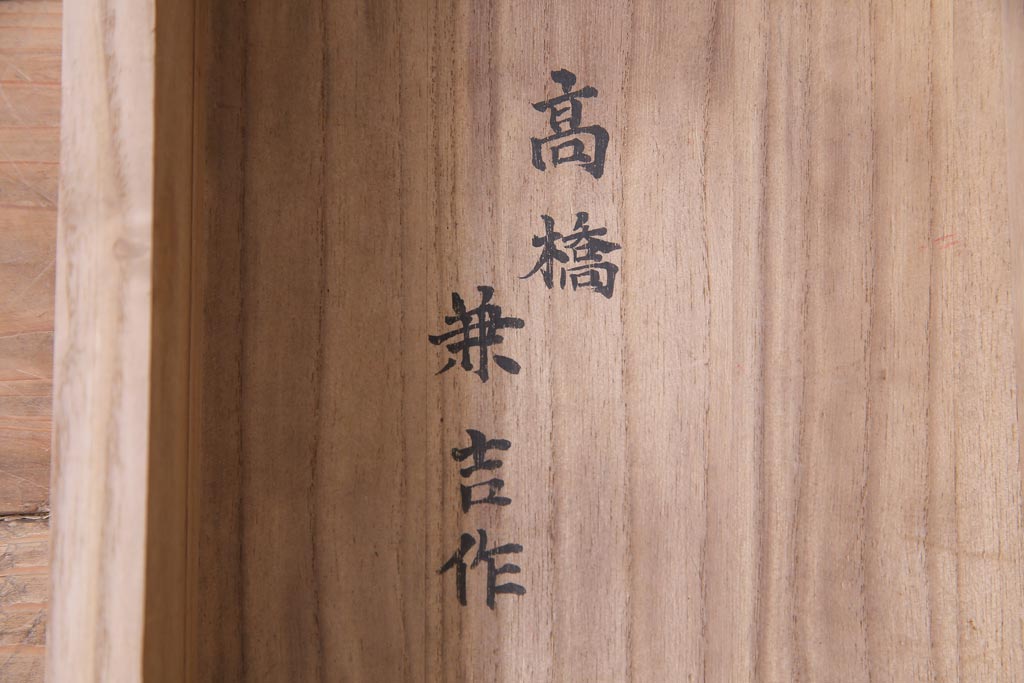 高橋
兼吉作